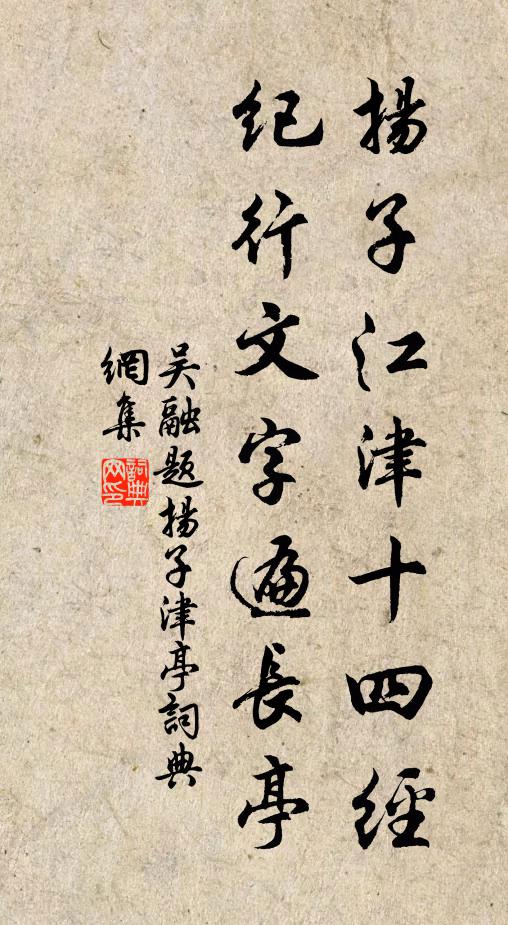 揚子江津十四經
紀行文字遍長亭
吴融題揚子津亭詞典
網集
詞典
网印